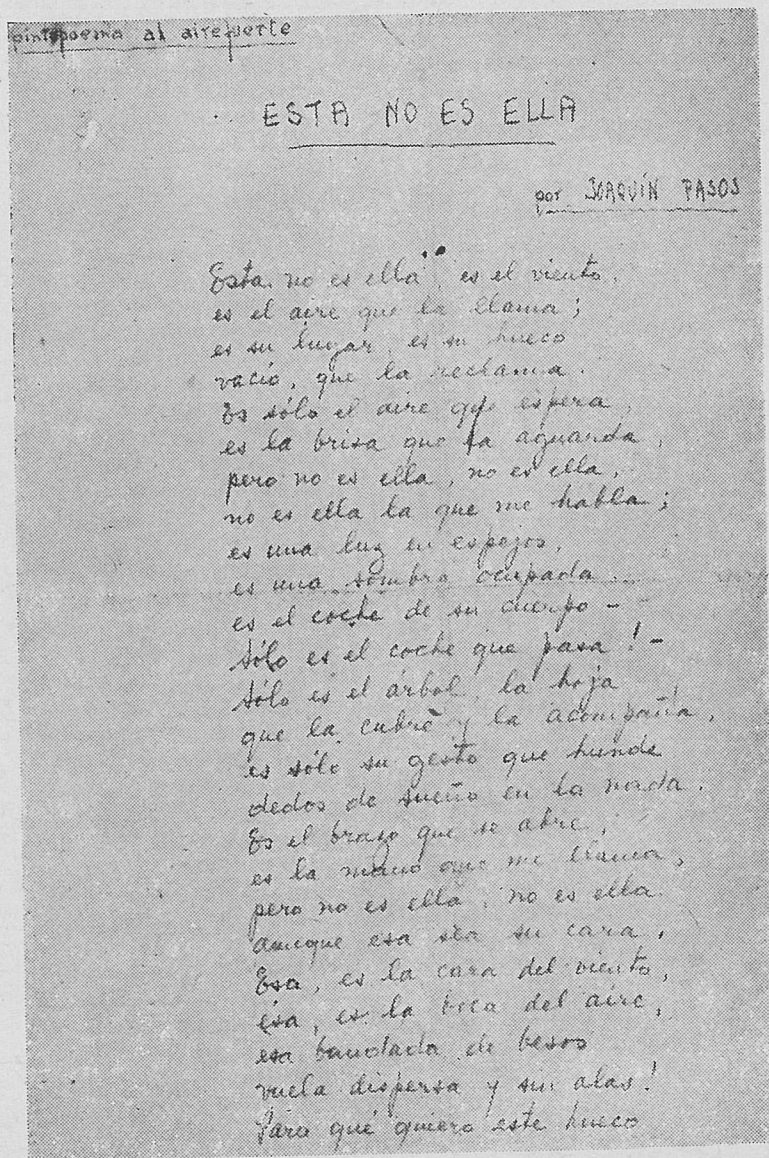 pintopoema al airefuerte
ESTA NO ES ELLA
por JOAQUÍN PASOS
Esta no es ella, es el viento,
es el aire que la llama;
es su lugar, es su hueco
vacío, que la reclama.
Es sólo el aire que espera,
es la brisa que la aguarda,
pero no es ella, no es ella,
no es ella la que me habla;
es una luz en espejos,
es una sombra ocupada...
es el coche de su cuerpo -
sólo es el coche que pasa! -
Sólo es el árbol, la hoja
que la cubre y la acompaña,
es sólo su gesto que hunde
dedos de sueño en la nada.
Es el brazo que se abre,
es la mano que me llama,
pero no es ella, no es ella
aunque esa sea su cara.
Esa, es la cara del viento,
ésa, es la boca del aire,
esa bandada de besos
vuela dispersa y sin alas!
Para qué quiero este hueco